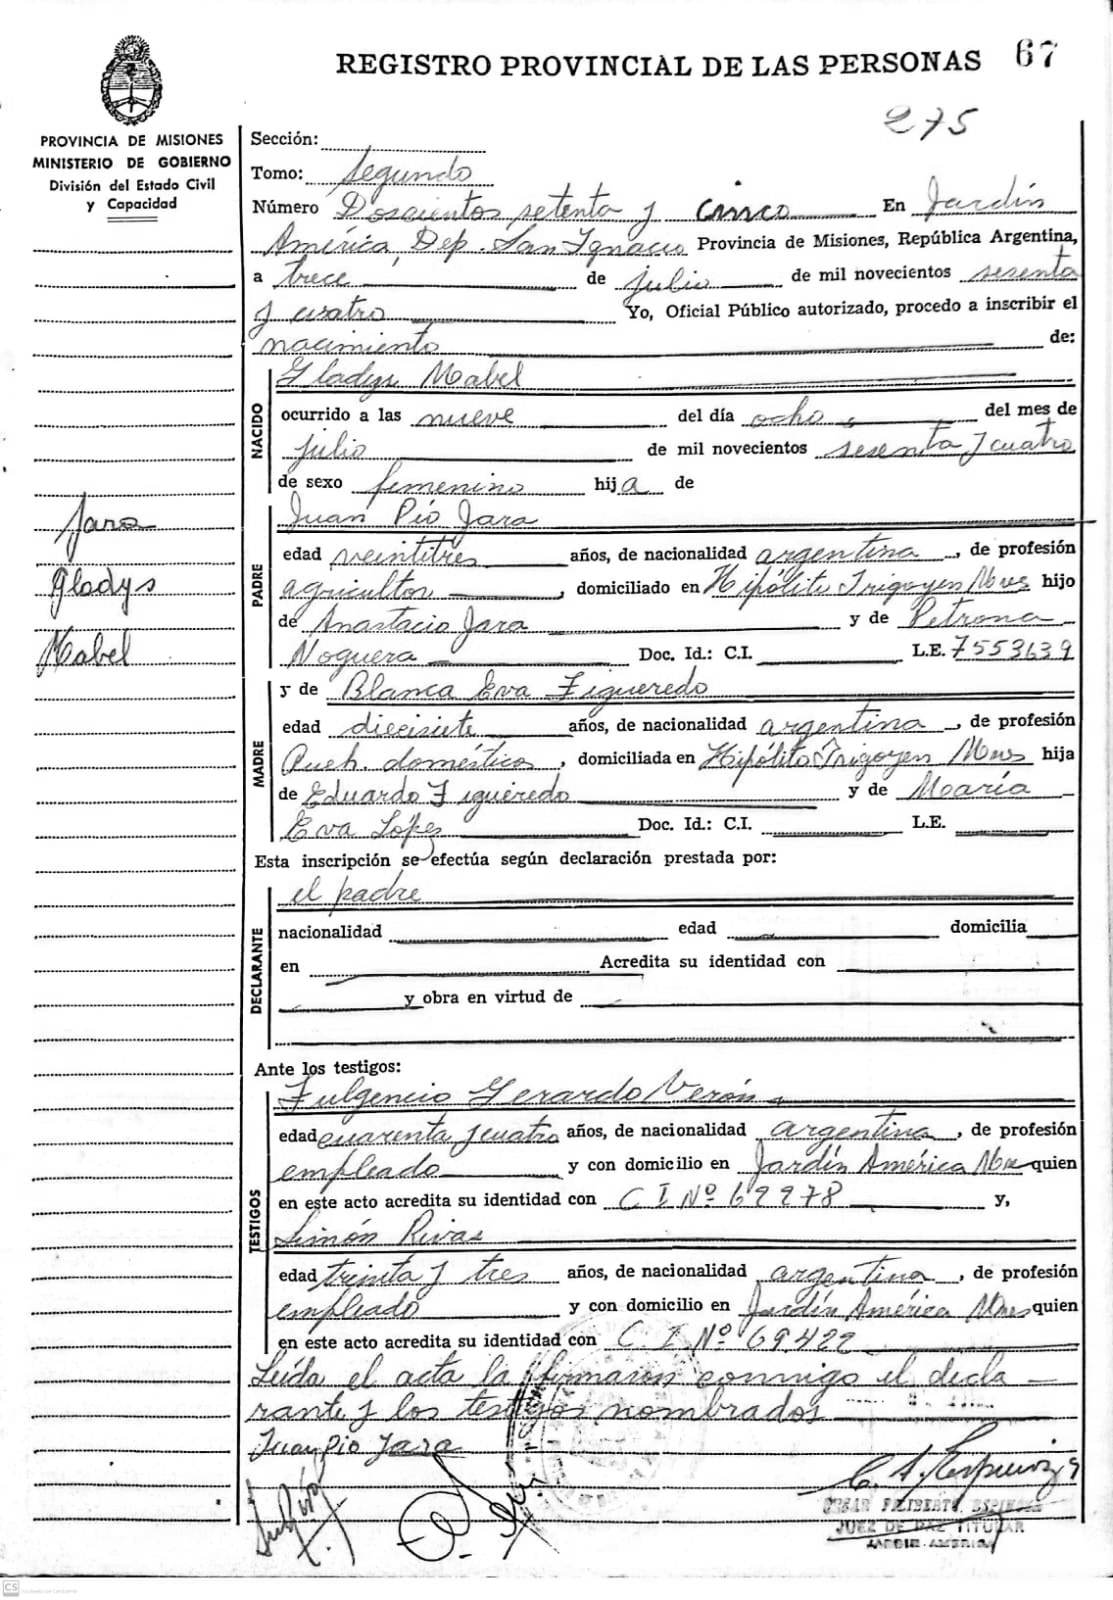 REGISTRO PROVINCIAL DE LAS PERSONAS 67
275
PROVINCIA DE MISIONES
MINISTERIO DE GOBIERNO
División del Estado Civil
y Capacidad
Jara
Gladys
Mabel
Sección:
Tomo: Segundo
Número Doscientos setenta y cinco En Jardín
América, Dep. San Ignacio Provincia de Misiones, República Argentina,
a trece de julio de mil novecientos sesenta
y cuatro Yo, Oficial Público autorizado, procedo a inscribir el
nacimiento de:
NACIDO
Gladys Mabel
ocurrido a las nueve del día ocho del mes de
julio de mil novecientos sesenta y cuatro
de sexo femenino hija de
PADRE
Juan Pío Jara
edad veintitres años, de nacionalidad argentina, de profesión
agricultor, domiciliado en Hipólito Irigoyen Mnes hijo
de Anastacio Jara y de Petrona
Noguera Doc. Id.: C.I. L.E. 7553639
MADRE
y de Blanca Eva Figueredo
edad diecisiete años, de nacionalidad argentina, de profesión
Queh. domésticos, domiciliada en Hipólito Irigoyen Mnes hija
de Eduardo Figueredo y de María
Eva Lopez Doc. Id.: C.I. L.E.
Esta inscripción se efectúa según declaración prestada por:
DECLARANTE
el padre
nacionalidad edad domicilia
en Acredita su identidad con
y obra en virtud de
Ante los testigos:
TESTIGOS
Fulgencio Gerardo Verón
edad cuarenta y cuatro años, de nacionalidad argentina, de profesión
empleado y con domicilio en Jardín América Mnes quien
en este acto acredita su identidad con C I Nº 69278 y,
Simón Rivas
edad treinta y tres años, de nacionalidad argentina, de profesión
empleado y con domicilio en Jardín América Mnes quien
en este acto acredita su identidad con C. I. Nº 69.422
Leída el acta la firmaron conmigo el decla
rante y los testigos nombrados
Juan Pio Jara
JUEZ DE PAZ TITULAR
JARDIN AMERICA
CS